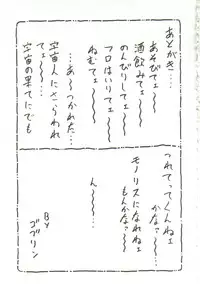 あとがき……
あそびてェ〜〜〜
酒飲みてェ〜〜〜
のんびりしてェ〜〜〜
フロはいりてェ〜〜〜
ねむてェ〜〜〜〜
…あ〜つかれた…
宇宙人にさらわれ
てェ〜〜…
宇宙の果てにでも
つれてってくんねェ
かな〜
モノリスになれねェ
もんかなァ〜
ん〜〜〜…
By
ゴブリン